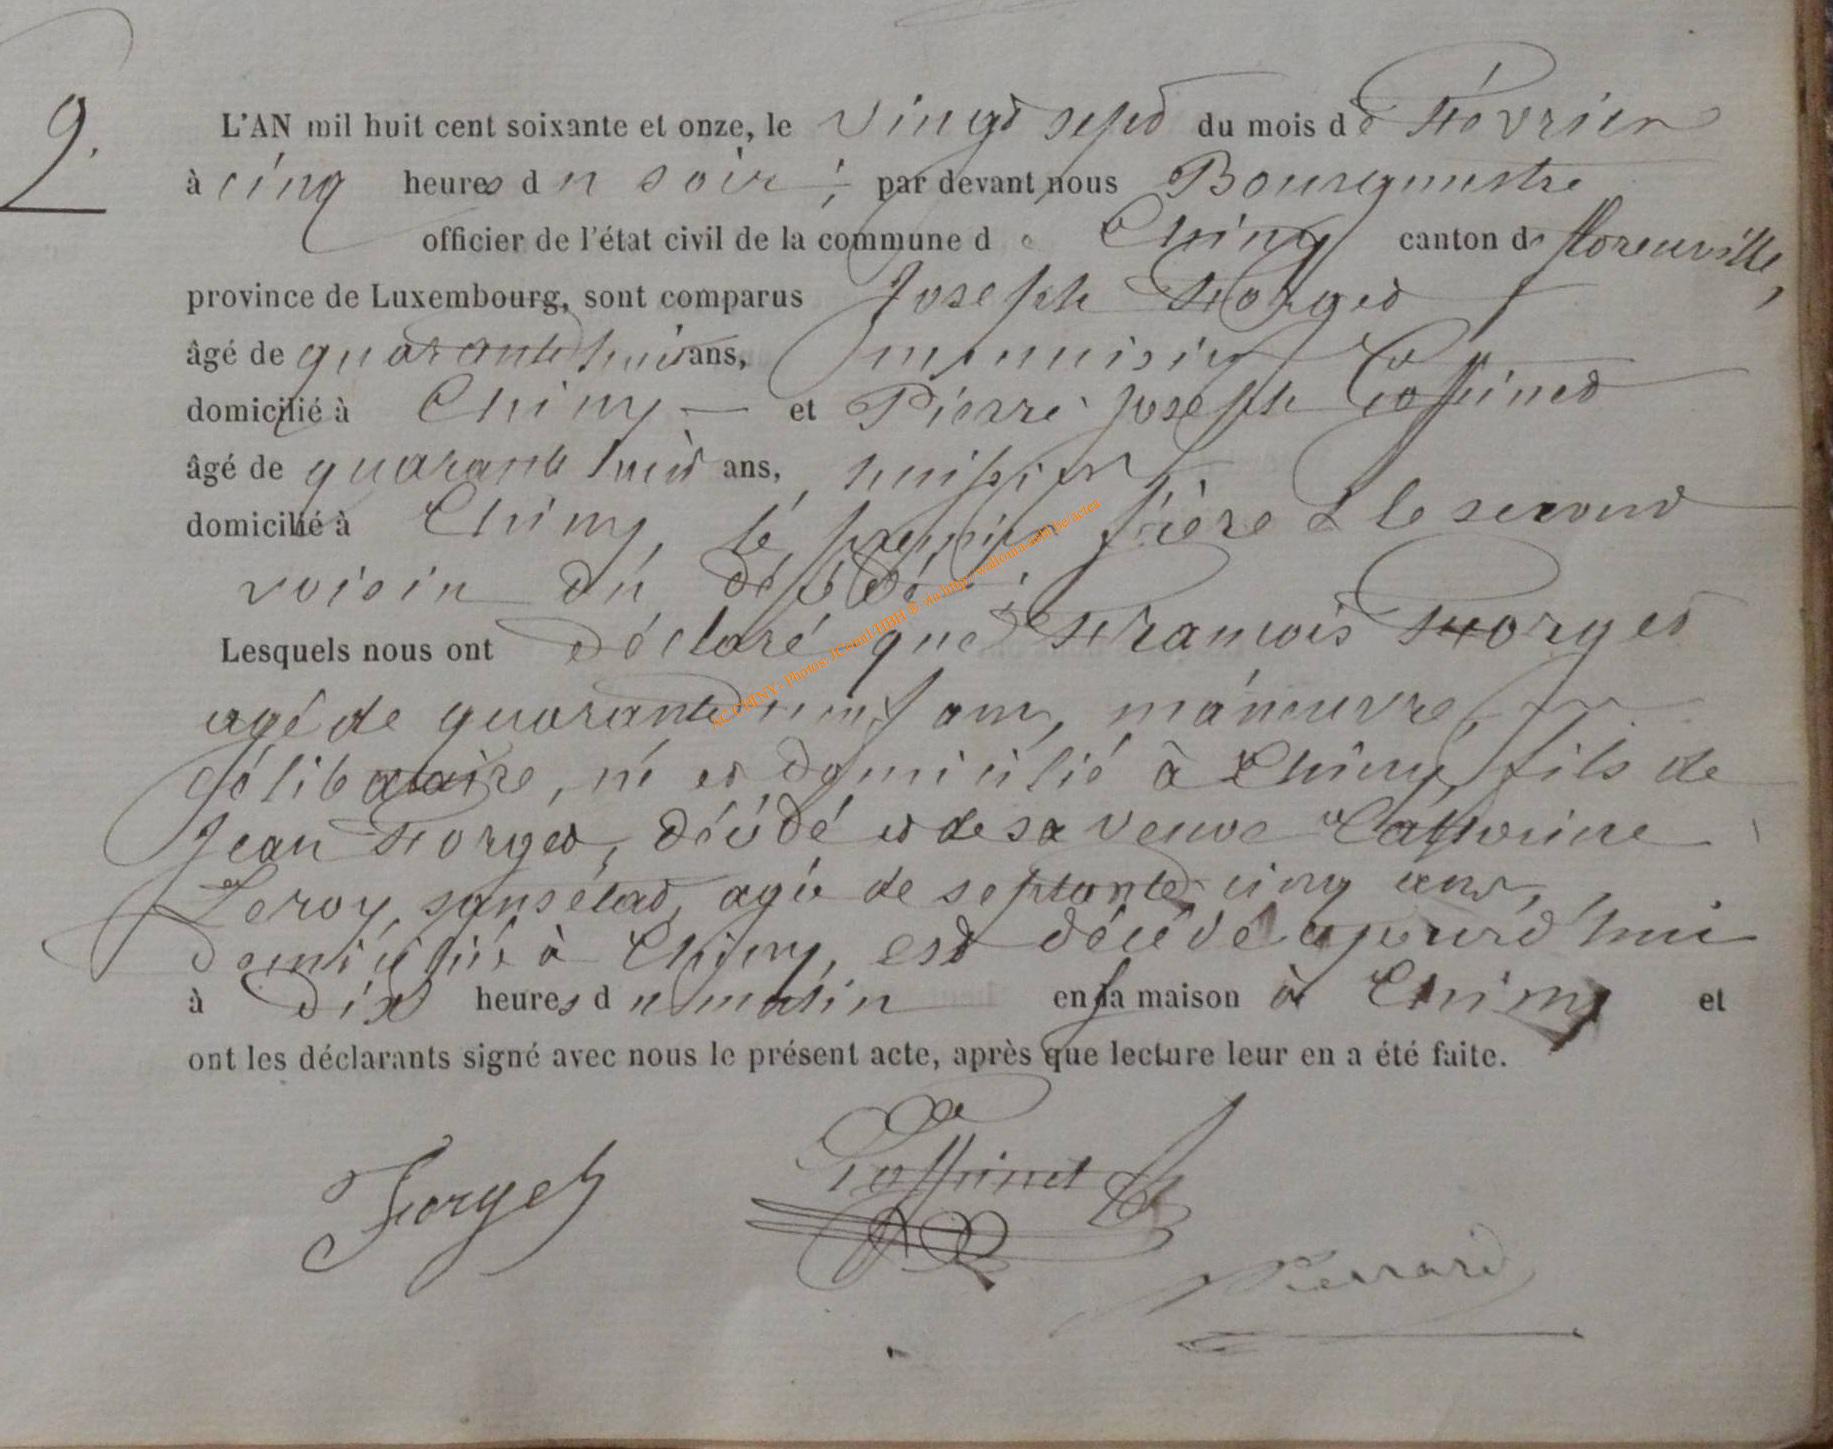 9.
L'AN mil huit cent soixante et onze, le vingt sept du mois de Février
à cinq heures du soir; par devant nous Bourgmestre
officier de l'état civil de la commune de Chiny canton de florenville,
province de Luxembourg, sont comparus Joseph Forget
âgé de quarante huit ans, menuisier
domicilié à Chiny et Pierre Joseph Goffinet
âgé de quarante huit ans, huissier
domicilié à Chiny, le premier frère & le second
voisin du décédé;
Lesquels nous ont déclaré que François Forget
agé de quarante neuf ans, manœuvre,
célibataire, né et domicilié à Chiny, fils de
Jean Forget, décédé et de sa veuve Catherine
Leroy, sans état, agée de septante cinq ans,
domiciliée à Chiny, est décédé ajourd'hui
à dix heures du matin en sa maison à Chiny et
ont les déclarants signé avec nous le présent acte, après que lecture leur en a été faite.
Forget Goffinet